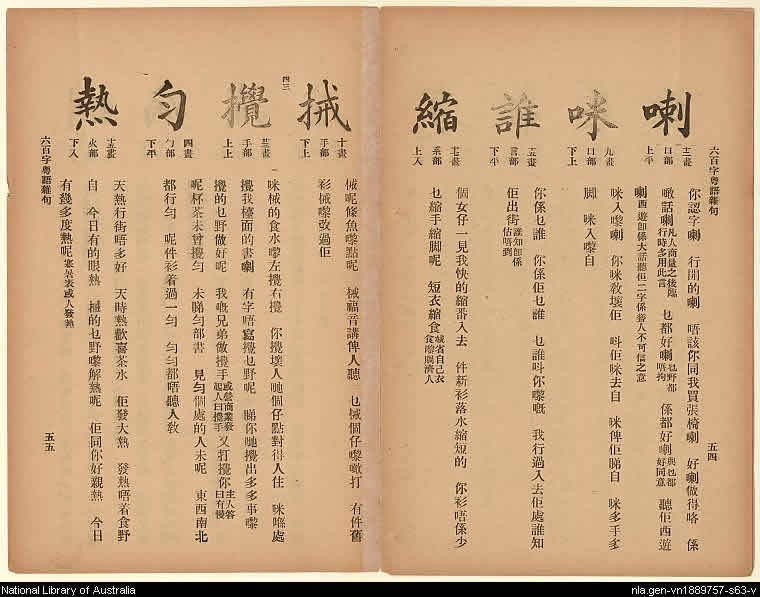 六百字粵語雜句
五四
喇
十二畫
口部
上平
你認字喇 行開的喇 唔該你同我買張椅喇 好喇做得咯 係
噉話喇凡人商量之後臨行時多用此言 乜都好喇乜野都唔拘 係都好喇與乜都好同意 聽佢西遊
喇西遊卽係大話聽佢二字係聳人不可信之意
咪
九畫
口部
下上
咪入嚟喇 你咪敎壞佢 呌佢咪去自 咪俾佢睇自 咪多手多
脚 咪入嚟自
誰
十五畫
言部
下平
你係乜誰 你係佢乜誰 乜誰呌你嚟嘅 我行過入去佢處誰知
佢出街誰知卽係估唔到
縮
十七畫
系部
上入
個女仔一見我快的縮番入去 件新衫落水縮短的 你衫唔係少
乜縮手縮脚呢 短衣縮食慳省自己衣食嚟賙濟人
四三
械
十畫
手部
下上
械呢條魚嚟點呢 械福音講俾人聽 乜械個仔嚟噉打 有件舊
衫械嚟改過佢
攪
手部
上上
咪械的食水嚟左攪右攪 你攪壞人哋個仔點對得人住 咪喺處
攪我檯面的書喇 有字唔寫攪乜野呢 睇你哋攪出多多事嚟
攪的乜野做好呢 我嘅兄弟做攪手或營商業發起人曰攪手 又打攪你主人答曰有慢
勻
四畫
勹部
下平
呢杯茶未曾攪勻 未睇勻部書 見勻個處的人未呢 東西南北
都行勻 呢件衫着過一勻 勻勻都唔聽人敎
熱
十五畫
火部
下入
天熱行街唔多好 天時熱歡喜茶水 佢發大熱 發熱唔着食野
自 今日有的眼熱 械的乜野嚟解熱呢 佢同你好親熱 今日
有幾多度熱呢寒暑表或人發熱
六百字粵語雜句
五五
National Library of Australia
nla.gen-vn1889757-s63-v